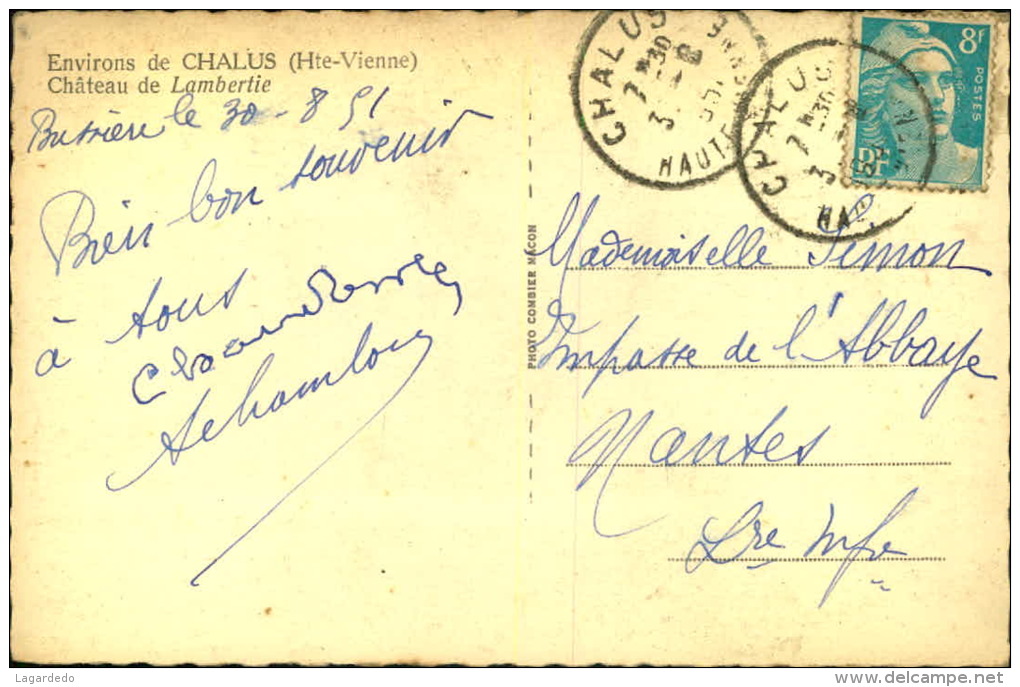 Environs de CHALUS (Hte-Vienne)
Château de Lambertie
Bussière le 30-8 51
Bien bon souvenir
à tous
CHALUS
7 H 30
HAUTE
CHALUS
7 H 30
8F
POSTES
RF
PHOTO COMBIER MÂCON
Mademoiselle Simon
Impasse de l'Abbaye
Nantes
Lre Infre
Lagardedo
delcampe.net